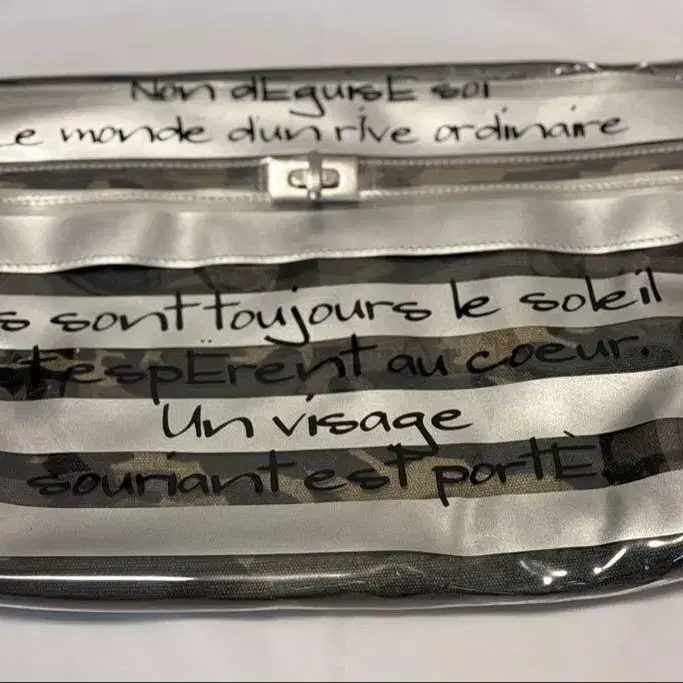 Non dEguisE soi
Le monde d'un rIve ordinaire
s sont toujours le soleil
et espErent au coeur.
Un visage
souriant est portÈ